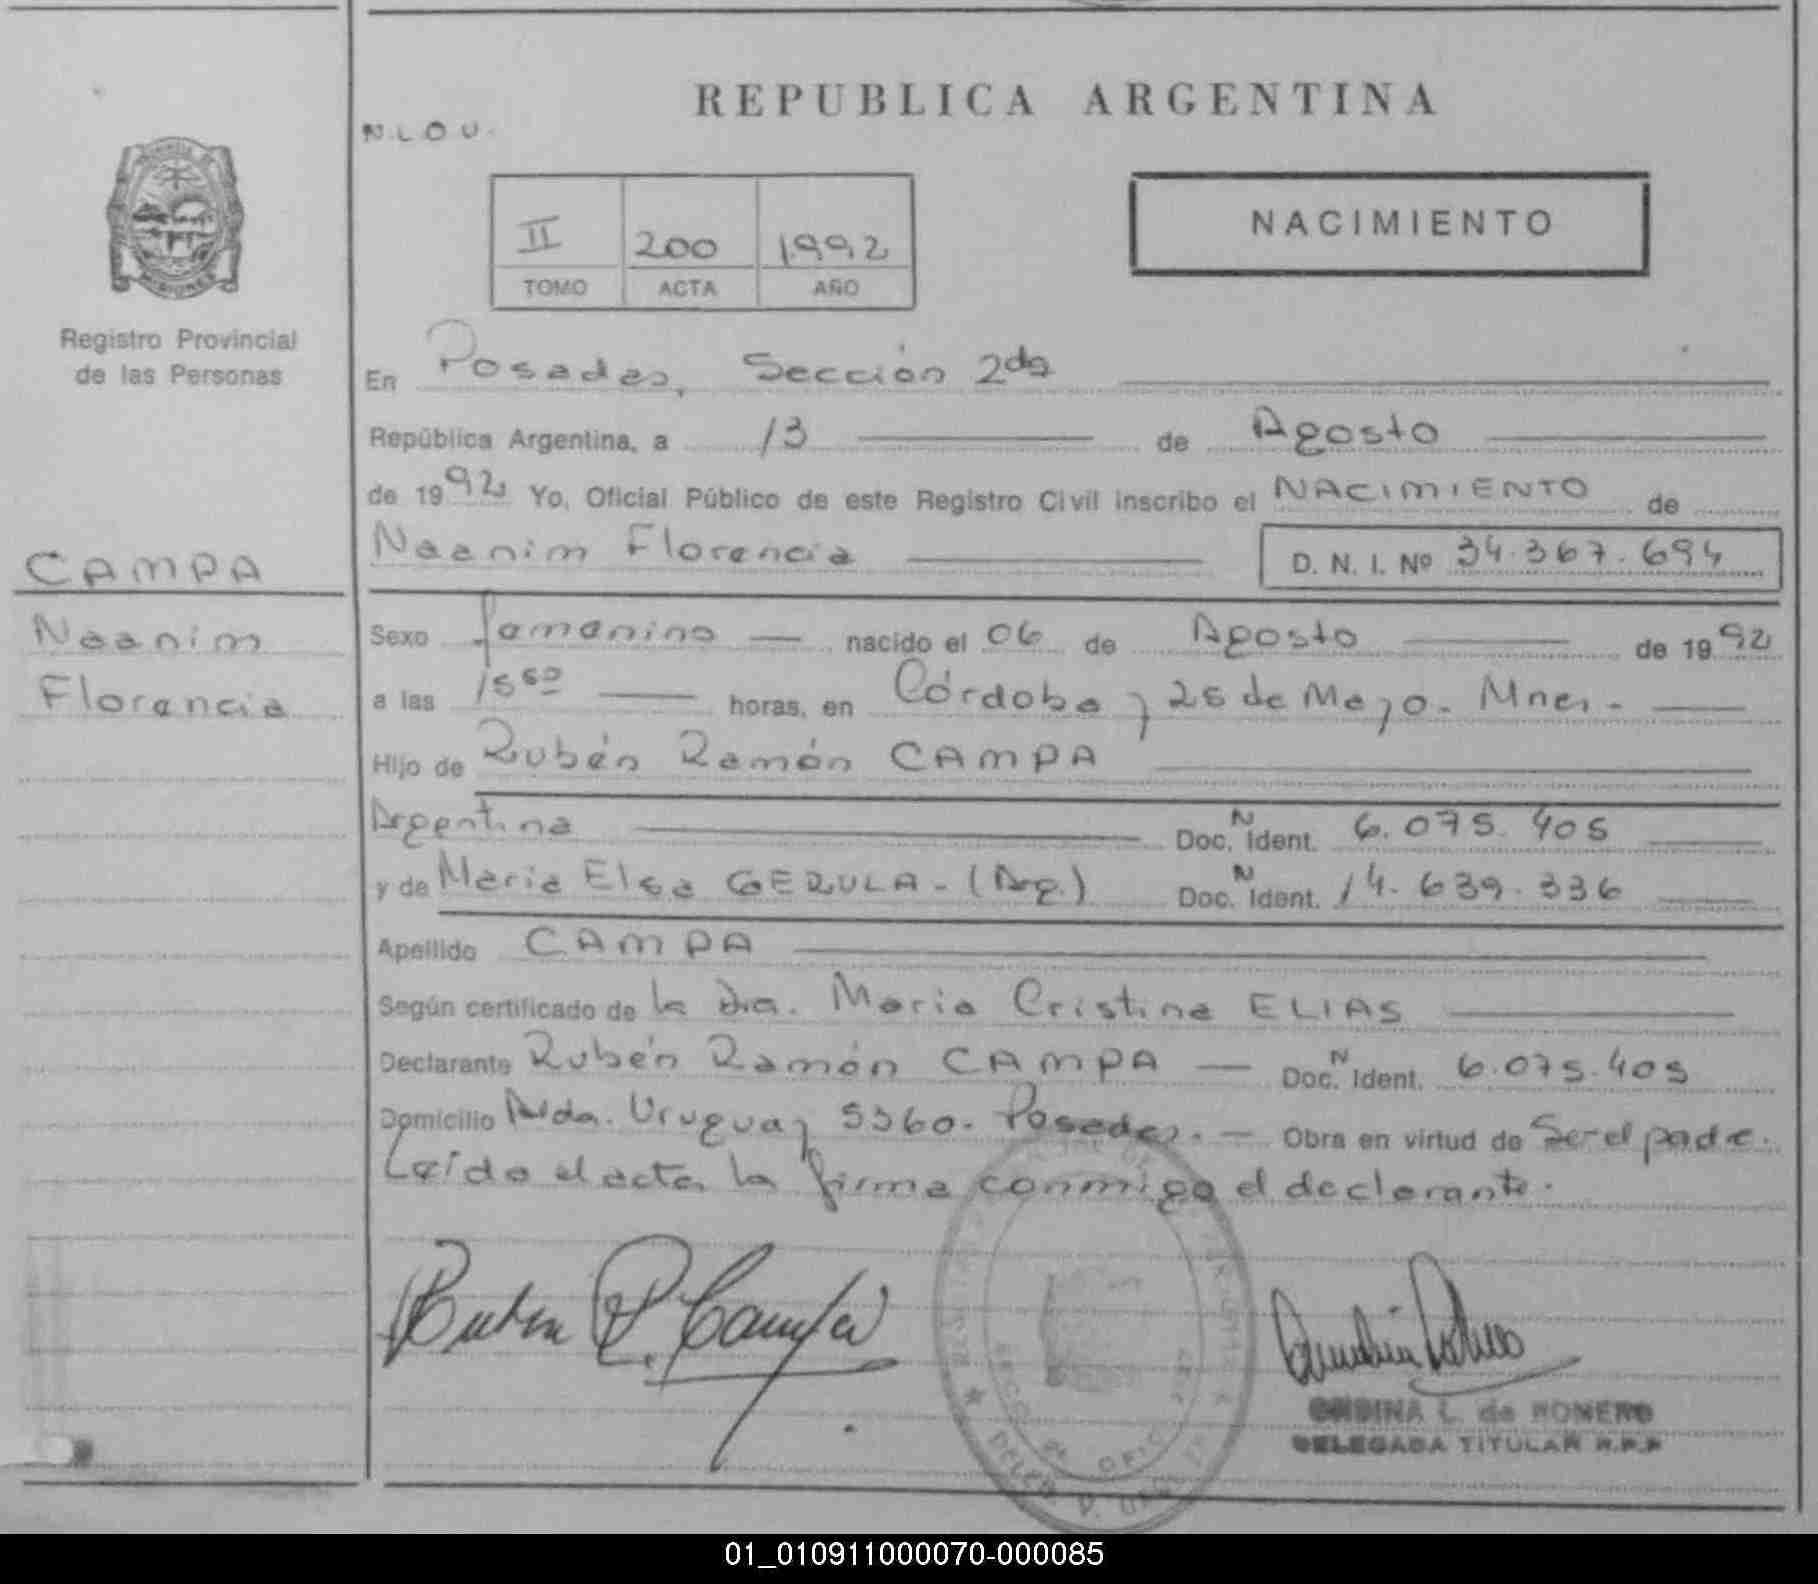 REPUBLICA ARGENTINA
N.L.O.U.
NACIMIENTO
II 200 1992
TOMO ACTA AÑO
Registro Provincial
de las Personas
En Posadas, Sección 2da
República Argentina, a 13 de Agosto
de 1992 Yo, Oficial Público de este Registro Civil inscribo el NACIMIENTO de
Naanim Florencia D. N. I. Nº 34.367.694
CAMPA
Naanim
Florencia
Sexo famanino nacido el 06 de Agosto de 1992
a las 15 50 horas, en Córdoba y 25 de Mayo. Mnes.
Hijo de Rubén Ramón CAMPA
Argentina Doc. N Ident. 6.075.405
y de Maria Elsa GERULA - (Arg.) Doc. N Ident. 14.639.336
Apellido CAMPA
Según certificado de la Dra. Maria Cristina ELIAS
Declarante Rubén Ramón CAMPA Doc. N Ident. 6.075.405
Domicilio Avda. Uruguay 5360. Posadas. - Obra en virtud de Ser el padre.
Leída el acta, la firma conmigo el declarante.
Ruben R. Campa
ONDINA L. de ROMERO
DELEGADA TITULAR R.P.P
01_010911000070-000085